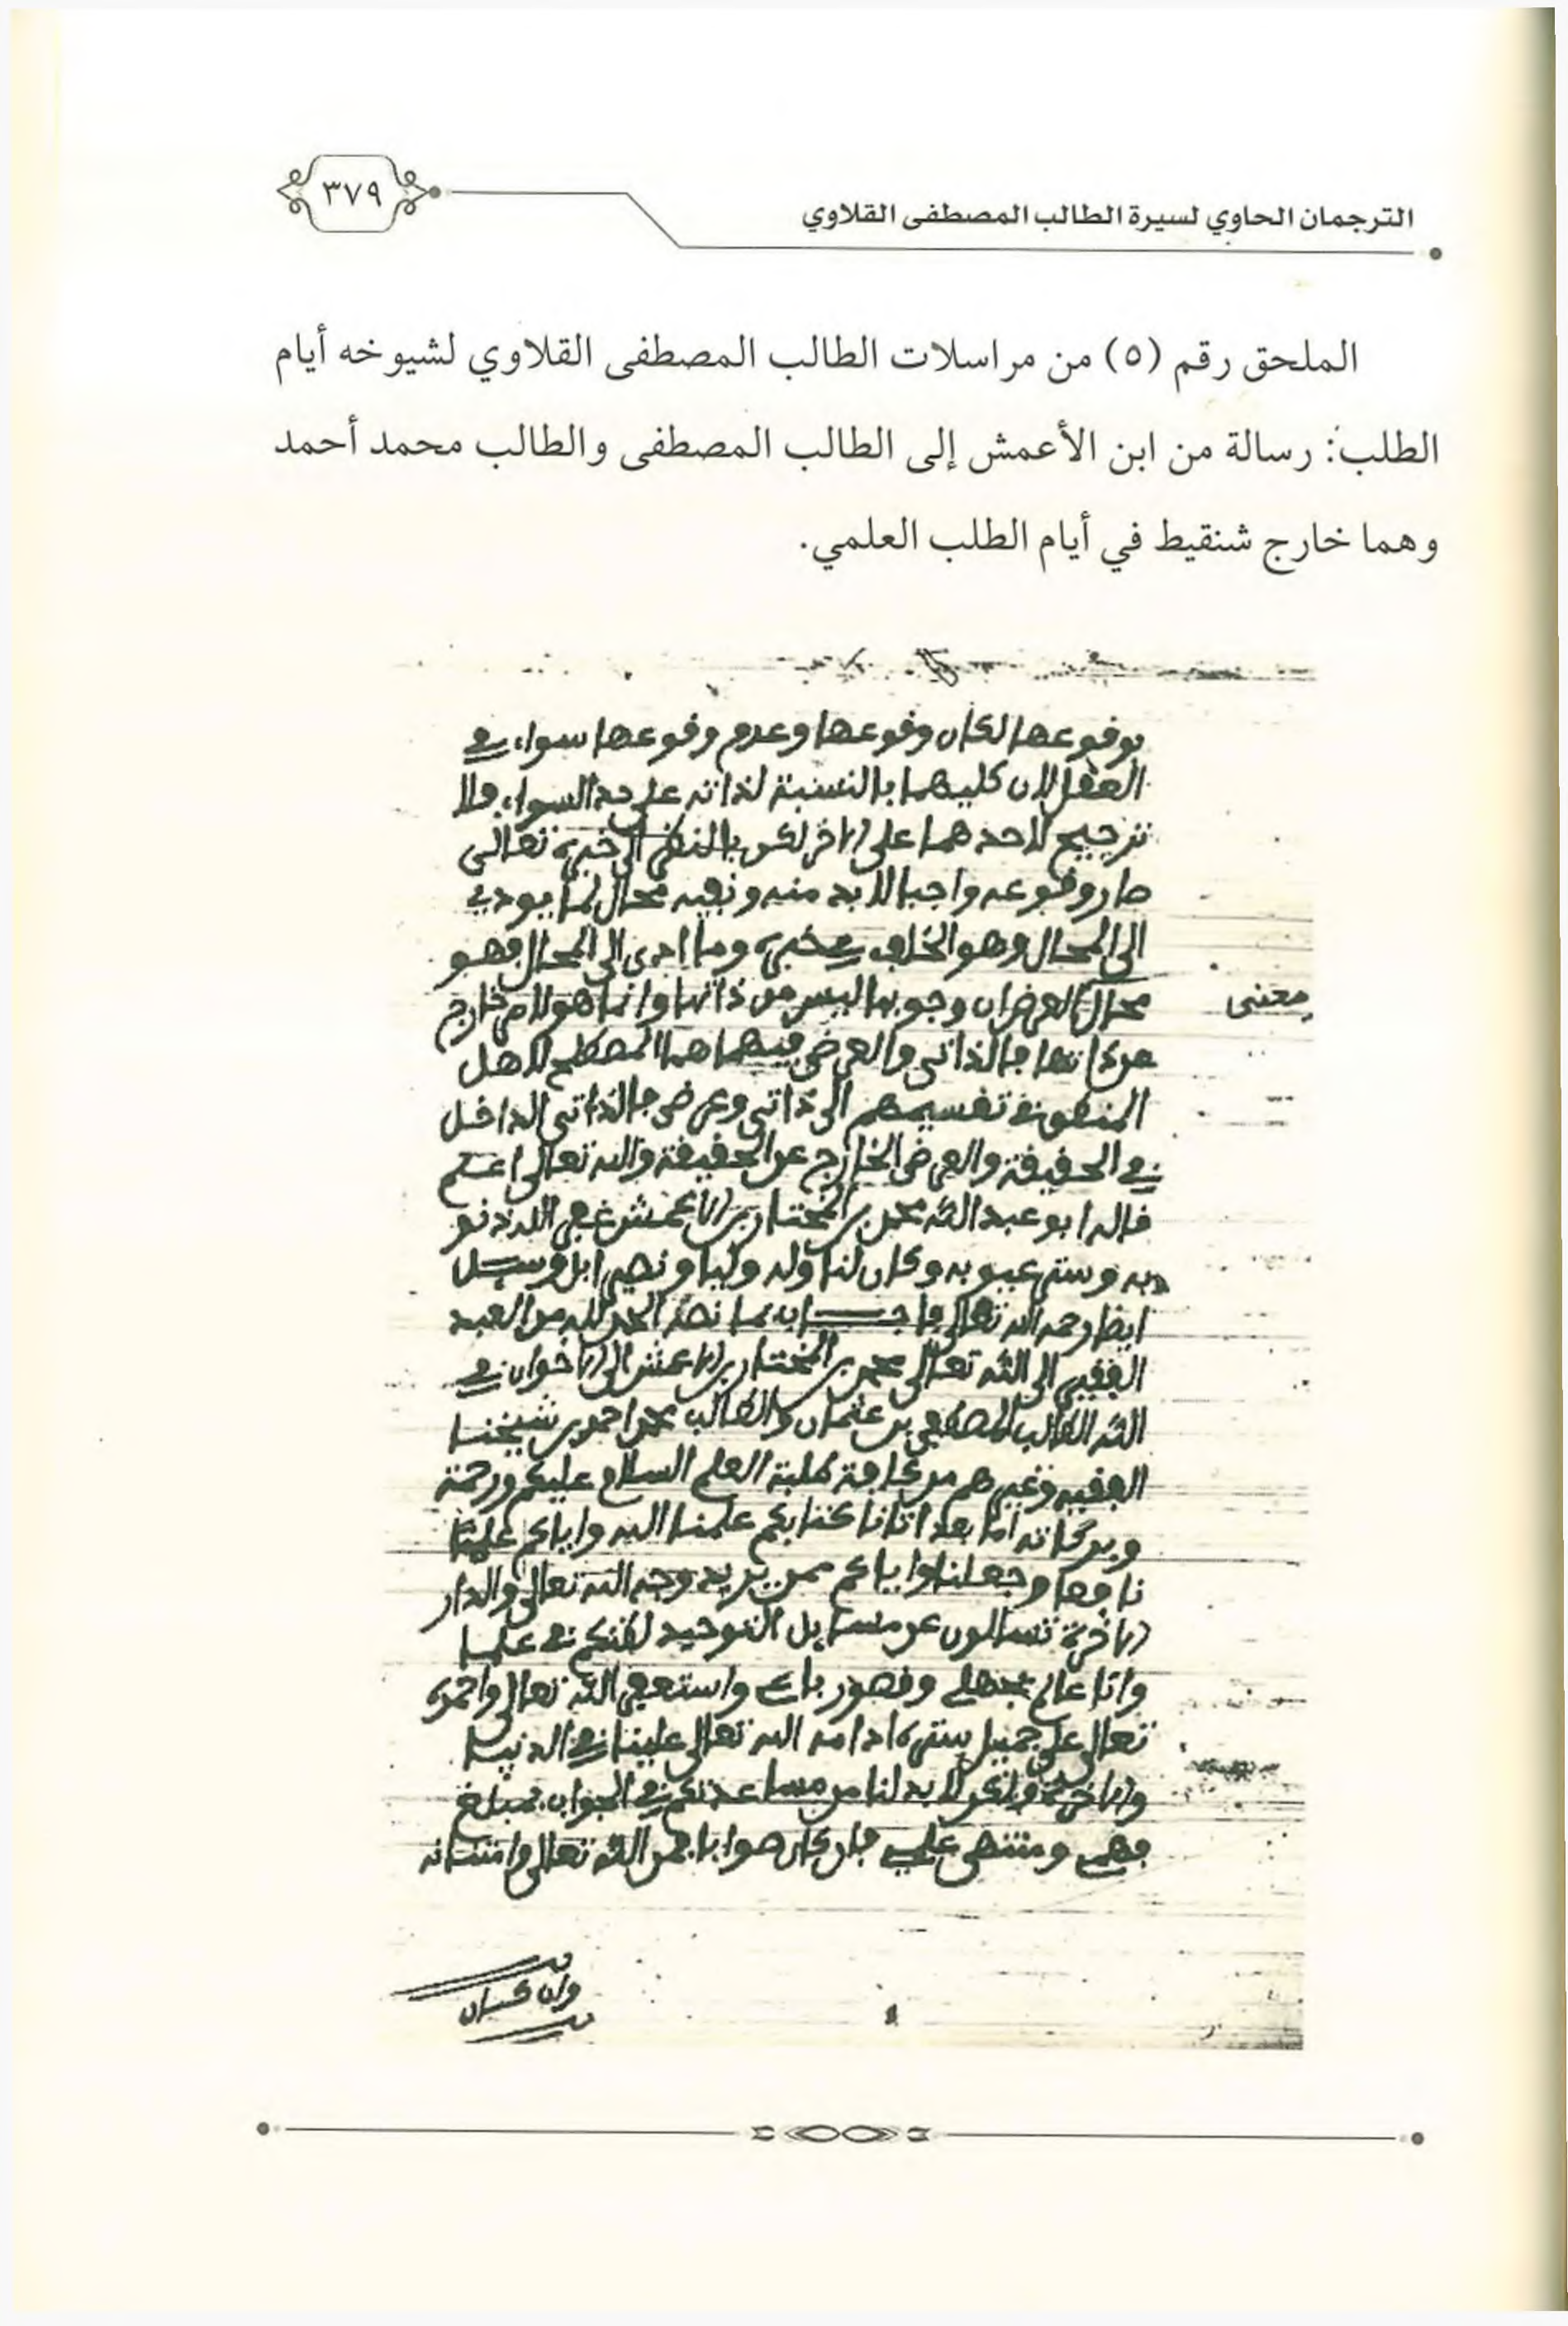 ٣٧٩
الترجمان الحاوي لسيرة الطالب المصطفى القلاوي
الملحق رقم (٥) من مراسلات الطالب المصطفى القلاوي لشيوخه أيام
الطلب: رسالة من ابن الأعمش إلى الطالب المصطفى والطالب محمد أحمد
وهما خارج شنقيط في أيام الطلب العلمي.
بوقوعها لكان وقوعها وعدم وقوعها سواء في
العقل لان كليهما بالنسبة لذاته على حد السواء فلا
ترجيح لاحدهما على الاخر لكن بالنظر الى خبره تعالى
صار وقوعه واجبا لا بد منه ونفيه محال لما يودي
الى المحال وهو الخلف في خبره وما ادى الى المحال فهو
محال العرض ان وجوبها ليس من ذاتها وانما هو لامر خارج
معنى
عن ذاتها فالذاتي والعرضي فيهما هما المصطلح لاهل
المنطق في تقسيمهم الى ذاتي وعرضي فالذاتي الداخل
في الحقيقة والعرضي الخارج عن الحقيقة والله تعالى اعلم
قاله ابو عبد الله محمد بن المختار بن الاعمش غفر الله ذنو
به وستر عيوبه وكان لنا وله وليا ونصيرا وسيل
ايضا رحمه الله تعالى فاجاب بما نصه الحمد لله من العبد
الفقير الى الله تعالى محمد بن المختار بن الاعمش الى الاخوان في
الله الطالب المصطفى بن عثمان والطالب محمد احمد بن شيخنا
الفقيه وغيرهم من كافة طلبة العلم السلام عليكم ورحمة
وبركاته اما بعد اتانا كتابكم علمنا الله واياكم علما
نافعا وجعلنا واياكم ممن يريد وجه الله تعالى والدار
الاخرة تسالون عن مسايل التوحيد لظنكم في علما
وانا عالم بجهلي وقصور باعي واستغفر الله تعالى واحمده
تعالى على جميل ستره ادامه الله تعالى علينا في الدنيا
والاخرة ولكن لا بد لنا من مساعدتكم في الجواب بمبلغ
فهمي ومنتهى علمي فان كان صوابا فمن الله تعالى وامتنانه
وان كان